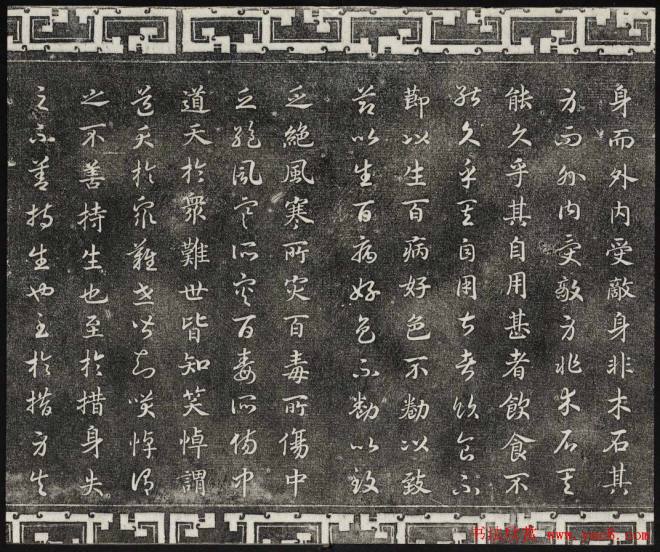 身而外内受敵身非木石其
身而外内受敵身非木石其
能久乎其自用甚者飲食不
能久乎其自用甚者飲食不
節以生百病好色不勌以致
節以生百病好色不勌以致
乏絶風寒所灾百毒所傷中
乏絶風寒所灾百毒所傷中
道夭於衆難世皆知笑悼謂
道夭於衆難世皆知笑悼謂
之不善持生也至於措身失
之不善持生也至於措身失
书法欣赏 www.yac8.com